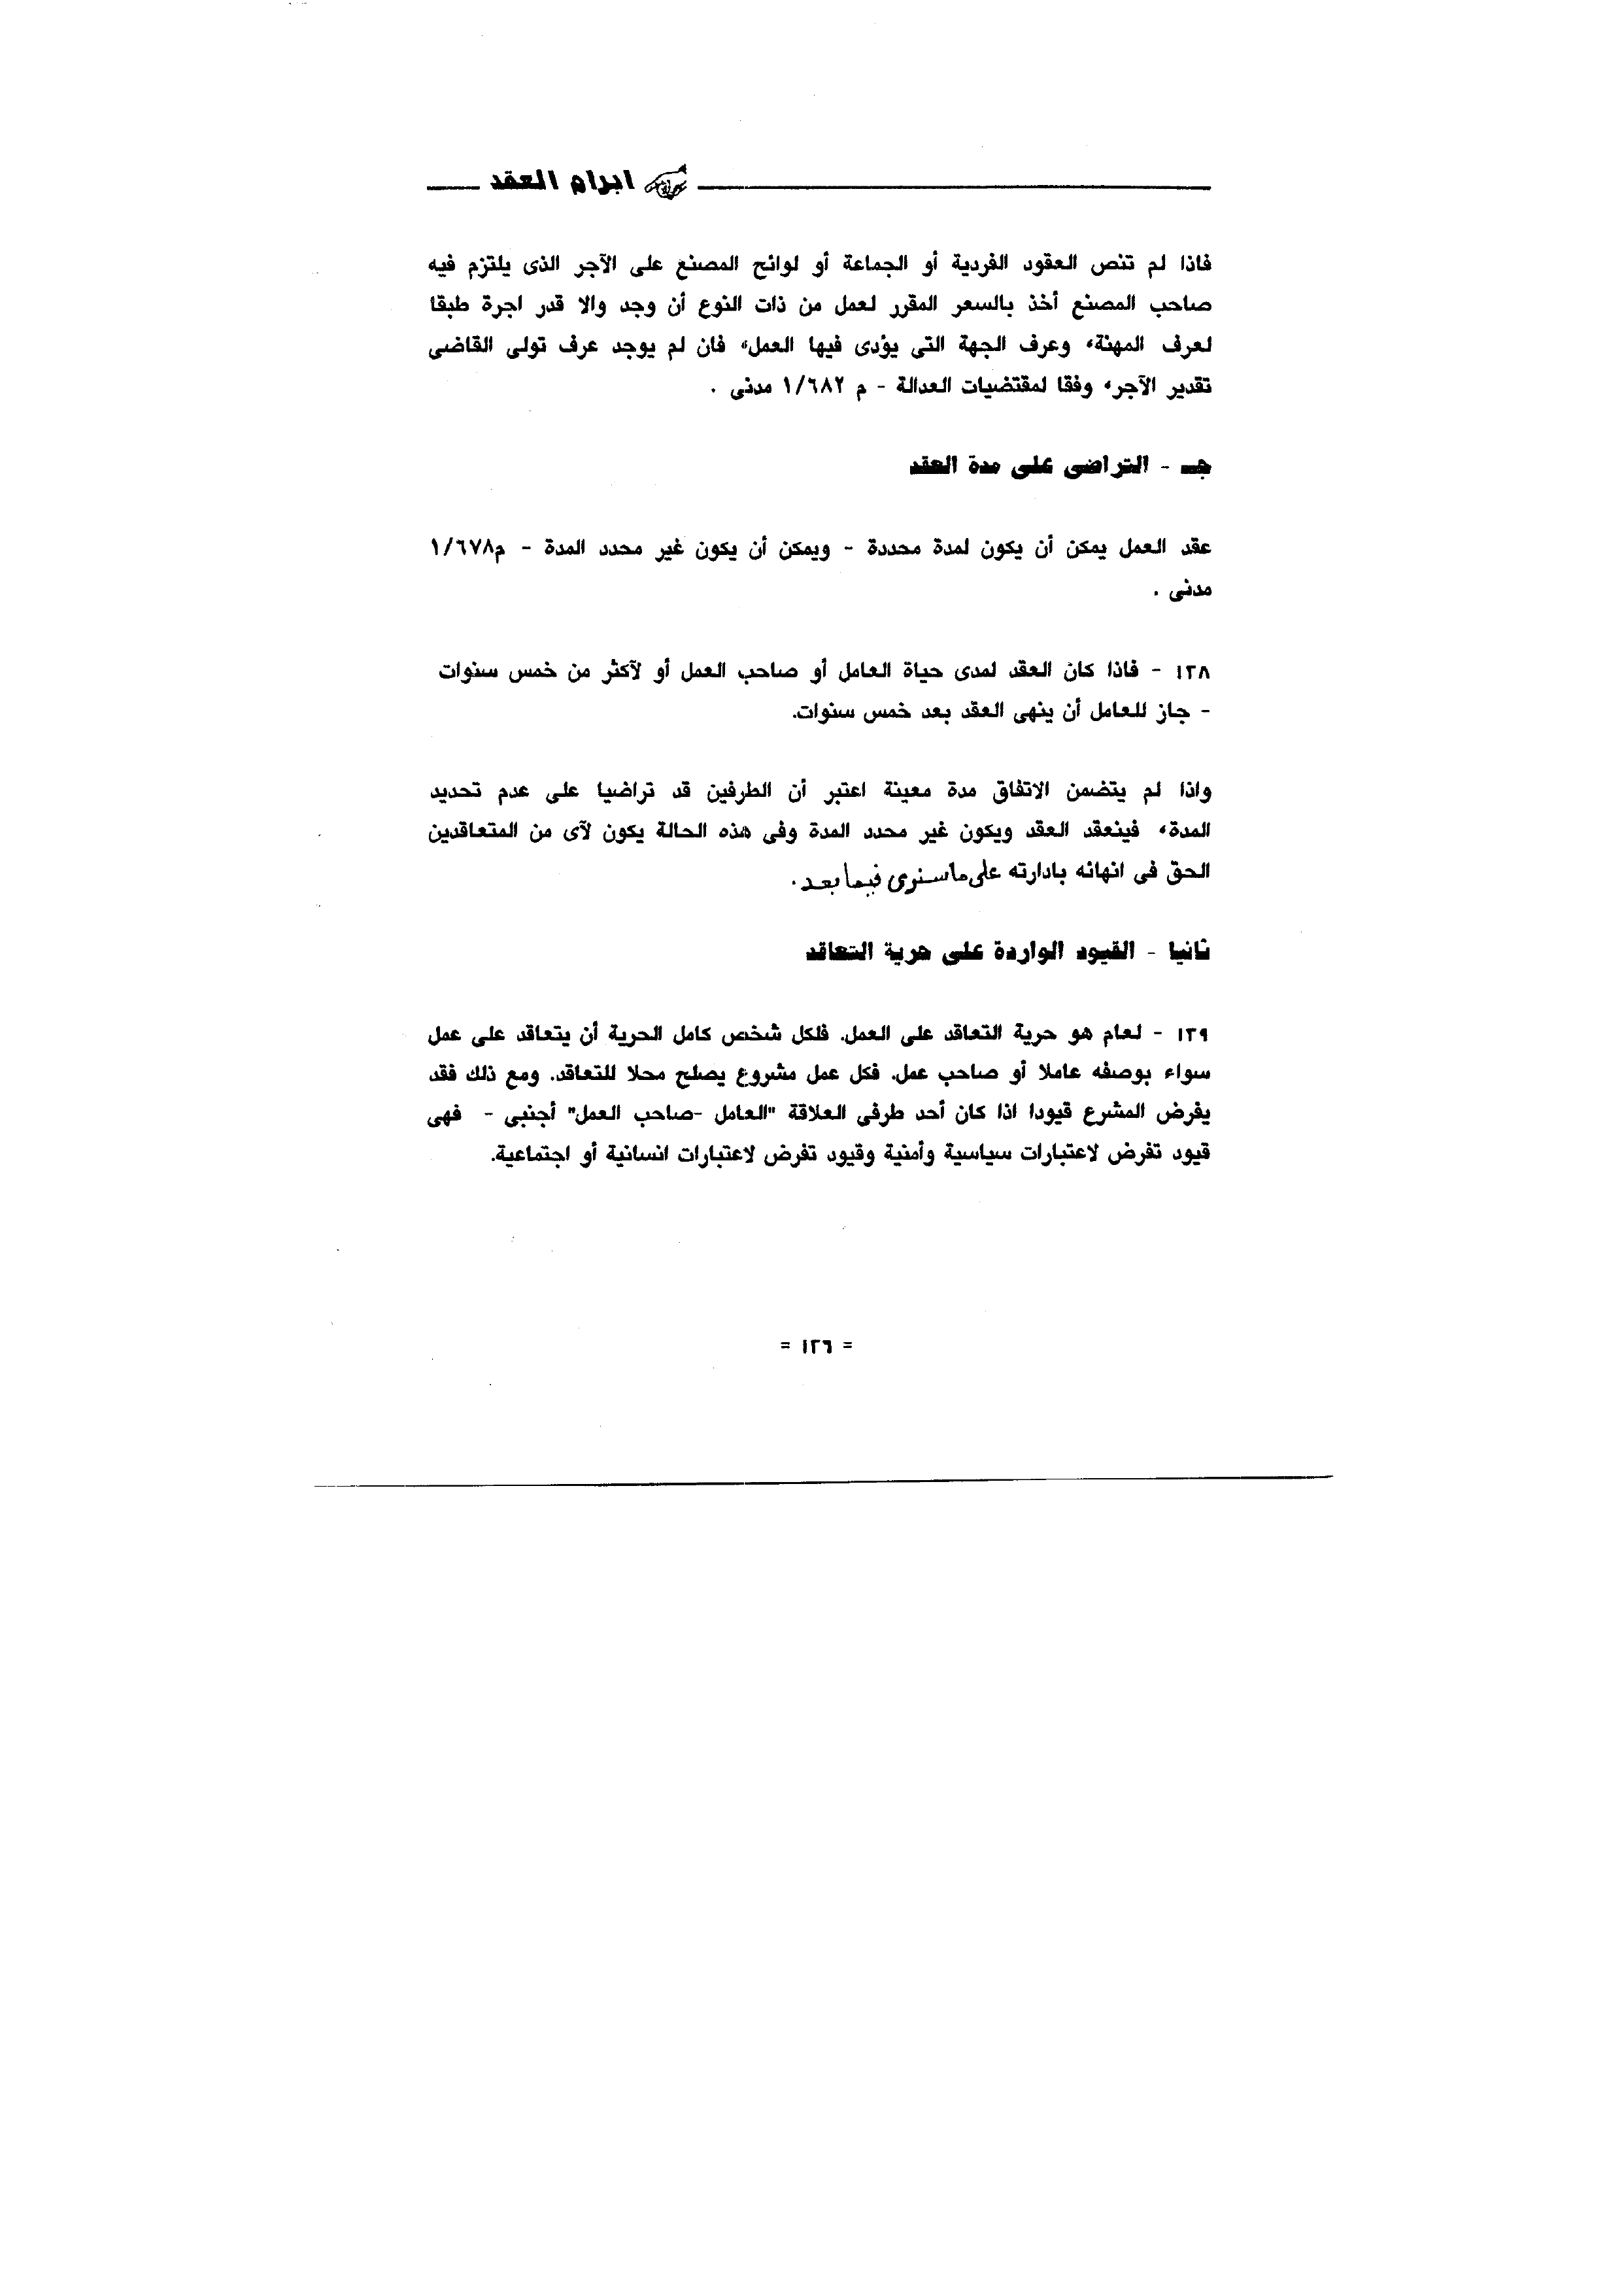 ابرام العقد
فاذا لم تنص العقود الفردية أو الجماعة أو لوائح المصنع على الآجر الذى يلتزم فيه
صاحب المصنع أخذ بالسعر المقرر لعمل من ذات النوع أن وجد والا قدر اجرة طبقا
لعرف المهنة، وعرف الجهة التى يؤدى فيها العمل، فان لم يوجد عرف تولى القاضى
تقدير الآجر، وفقا لمقتضيات العدالة - م ١/٦٨٢ مدنى .
جـ - التراضى على مدة العقد
عقد العمل يمكن أن يكون لمدة محددة - ويمكن أن يكون غير محدد المدة - م١/٦٧٨
مدنى .
١٢٨ - فاذا كان العقد لمدى حياة العامل أو صاحب العمل أو لآكثر من خمس سنوات
- جاز للعامل أن ينهى العقد بعد خمس سنوات.
واذا لم يتضمن الاتفاق مدة معينة اعتبر أن الطرفين قد تراضيا على عدم تحديد
المدة، فينعقد العقد ويكون غير محدد المدة وفى هذه الحالة يكون لآى من المتعاقدين
الحق فى انهائه بادارته على ما سنرى فيما بعد.
ثانيا - القيود الواردة على حرية التعاقد
١٢٩ - لعام هو حرية التعاقد على العمل. فلكل شخص كامل الحرية أن يتعاقد على عمل
سواء بوصفه عاملا أو صاحب عمل. فكل عمل مشروع يصلح محلا للتعاقد. ومع ذلك فقد
يفرض المشرع قيودا اذا كان أحد طرفى العلاقة "العامل -صاحب العمل" أجنبى - فهى
قيود تفرض لاعتبارات سياسية وأمنية وقيود تفرض لاعتبارات انسانية أو اجتماعية.
= ١٢٦ =